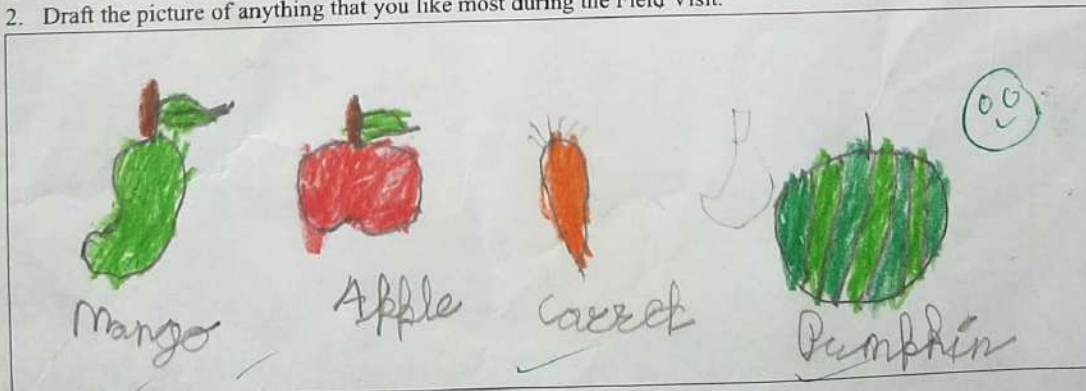 2. Draft the picture of anything that you like most during the Field Visit.
Mango Apple Carrot Pumpkin